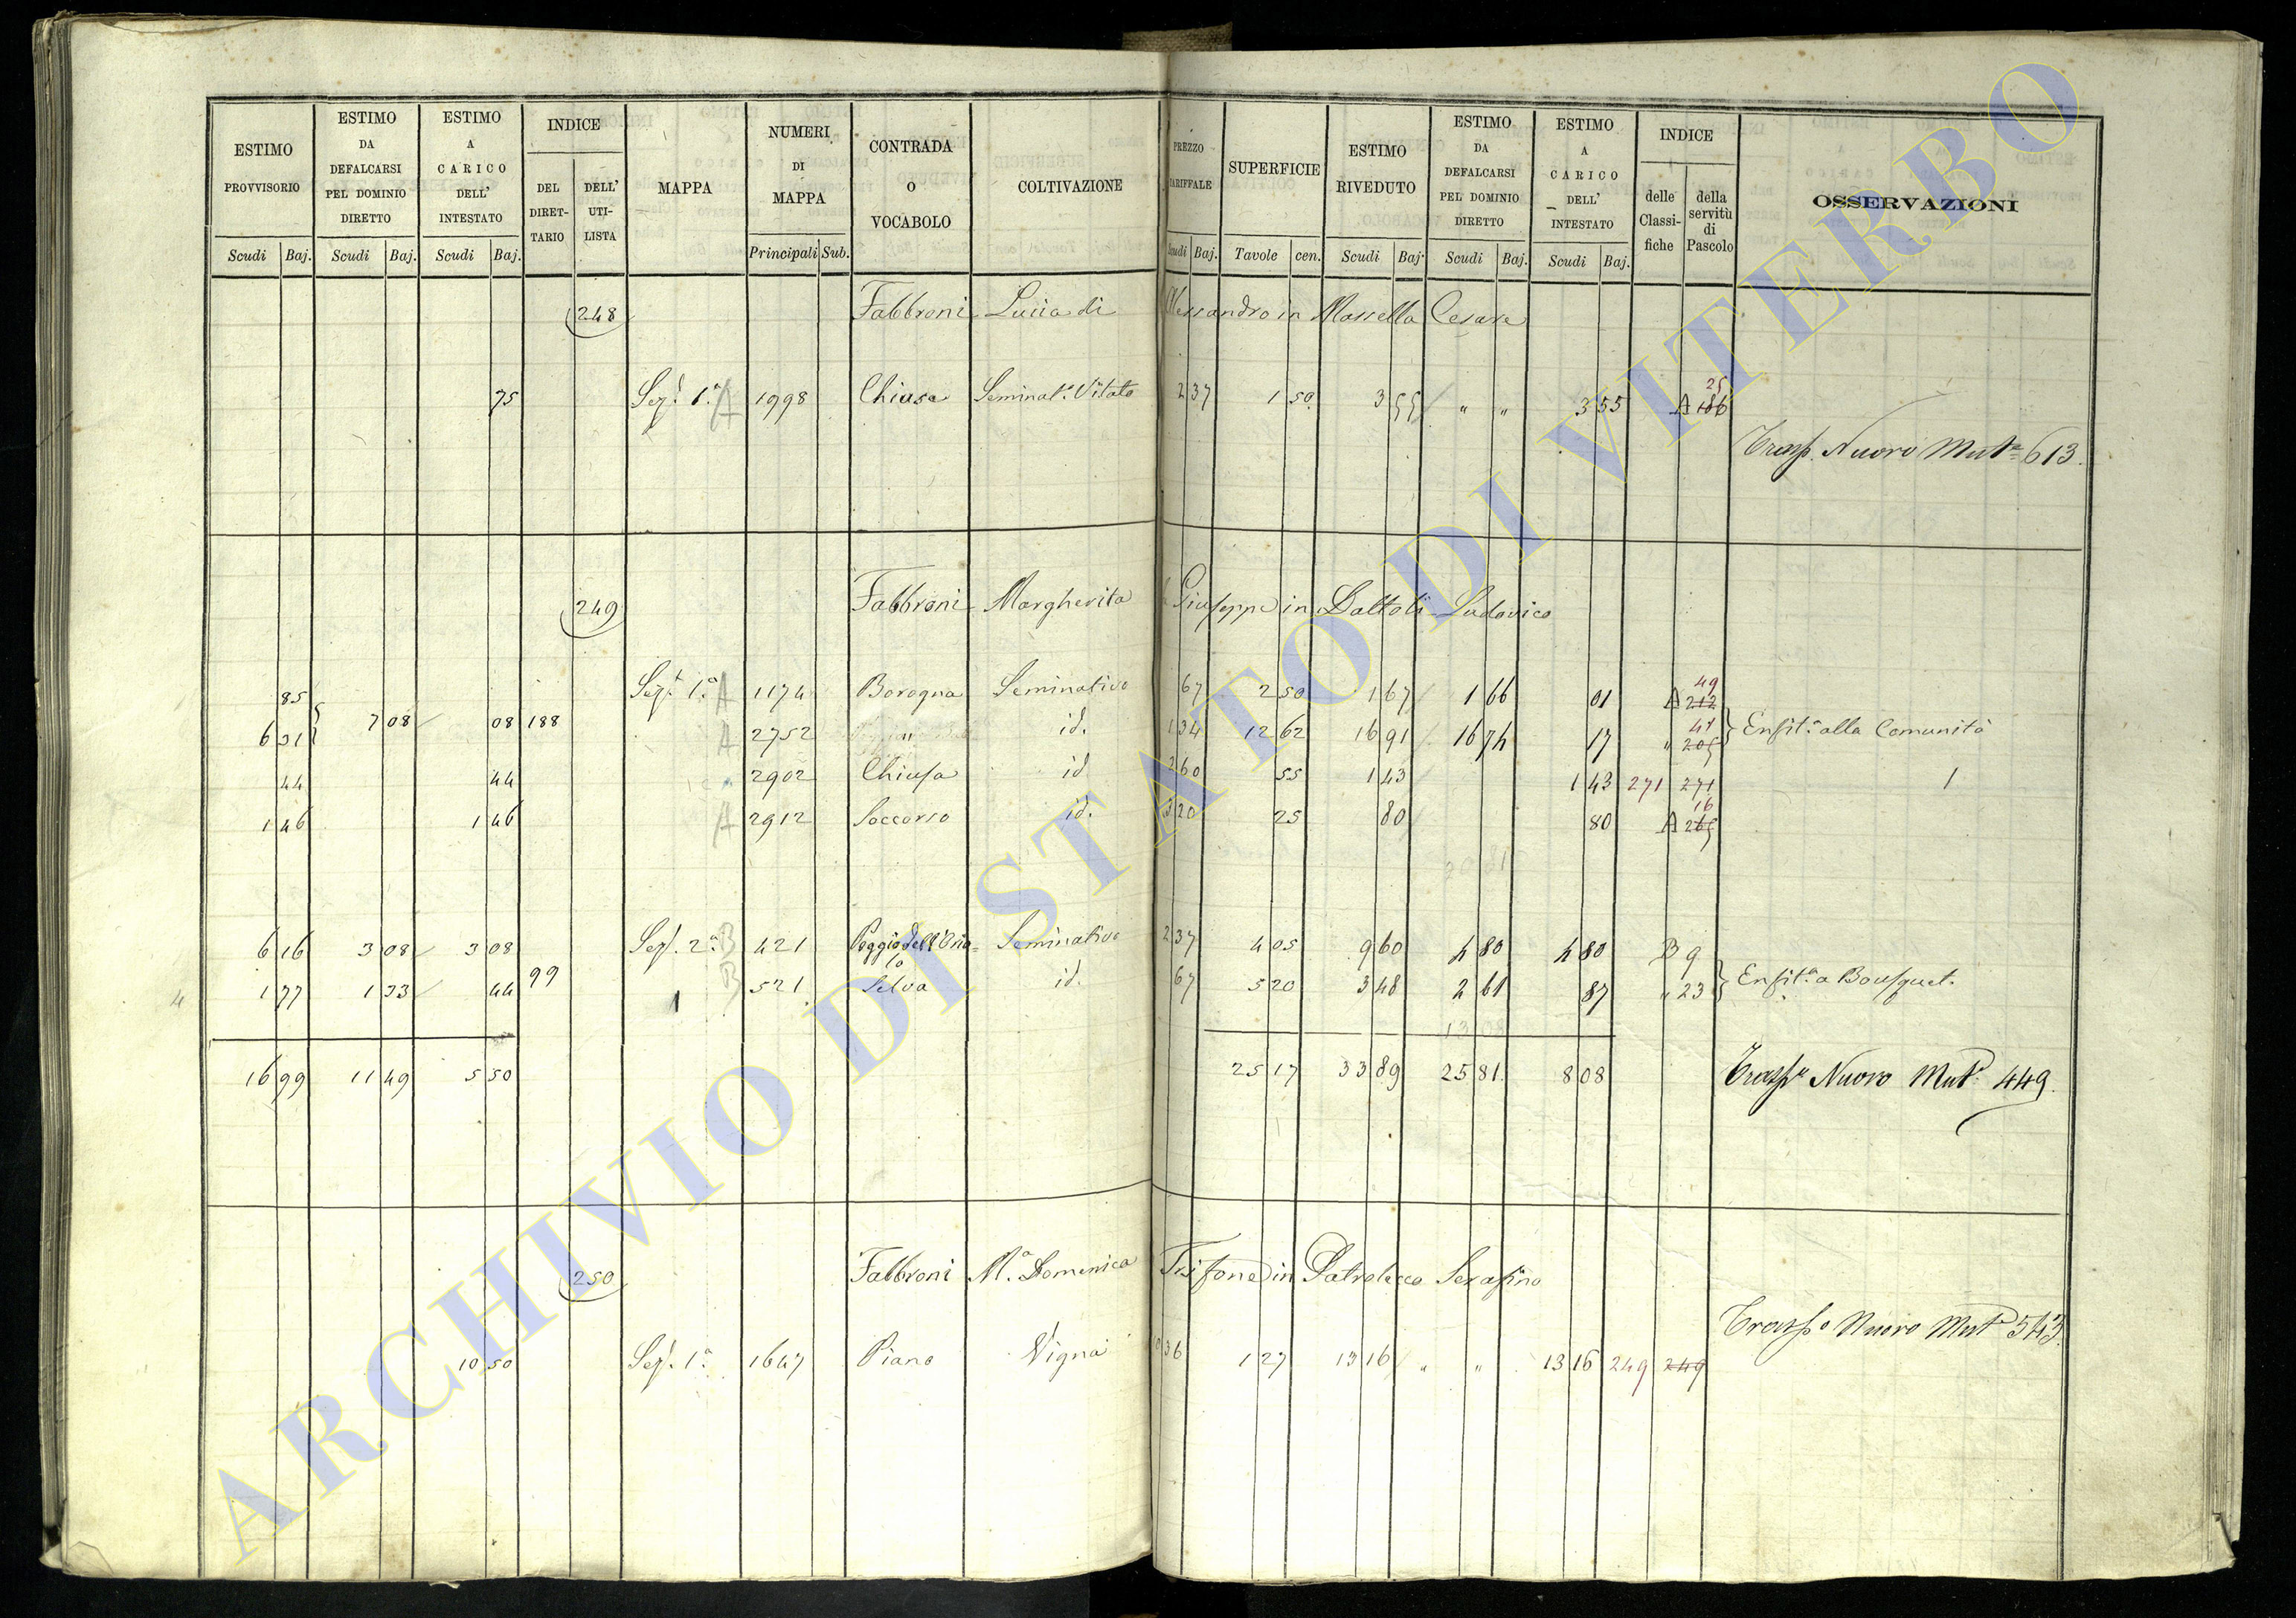 ESTIMO PROVVISORIO | ESTIMO DA DEFALCARSI PEL DOMINIO DIRETTO | ESTIMO A CARICO DELL' INTESTATO | INDICE | MAPPA | NUMERI DI MAPPA | CONTRADA O VOCABOLO | COLTIVAZIONE | PREZZO TARIFFALE | SUPERFICIE | ESTIMO RIVEDUTO | ESTIMO DA DEFALCARSI PEL DOMINIO DIRETTO | ESTIMO A CARICO DELL' INTESTATO | INDICE | OSSERVAZIONI
DEL DIRETTARIO | DELL' UTILISTA | delle Classifiche | della servitù di Pascolo
Scudi Baj. | Scudi Baj. | Scudi Baj. | Principali Sub. | Scudi Baj. | Tavole cen. | Scudi Baj. | Scudi Baj. | Scudi Baj.
248 Fabbroni Lucia di Alessandro in Cesare
75 Sez. 1.a A 1998 Chiusa Seminat.o Vitato 2 37 1 50 3 55 " " 3 55 A 186 25
Trasp. Nuovo Mut. 613.
249 Fabbroni Margherita Giuseppe in Ludovico
85 Sez. 1.a A 1174 Seminativo 67 2 50 1 67 1 66 01 A 212 49
6 31 7 08 08 188 A 2752 id. 1 34 12 62 16 91 16 74 17 " Enfit. alla Comunità
44 44 2902 Chiusa id 2 60 55 1 43 1 43 271 271 1
1 46 1 46 A 2912 Soccorso id. 3 20 25 80 80 A 265 16
6 16 3 08 3 08 Sez. 2.a B 421 Poggio Seminativo 2 37 4 05 9 60 4 80 4 80 B 9
1 77 1 33 44 99 1 B 521 Selva id. 67 5 20 3 48 2 61 87 " 23 Enfit. a Bousquet.
16 99 11 49 5 50 25 17 33 89 25 81 8 08 Trasp. Nuovo Mut. 449.
250 Fabbroni M.a Domenica Trifone in Serafino
Trasp.o Nuovo Mut. 543
10 50 Sez. 1.a 1647 Piano Vigna 36 1 27 13 16 " " 13 16 249 249
ARCHIVIO DI STATO DI VITERBO